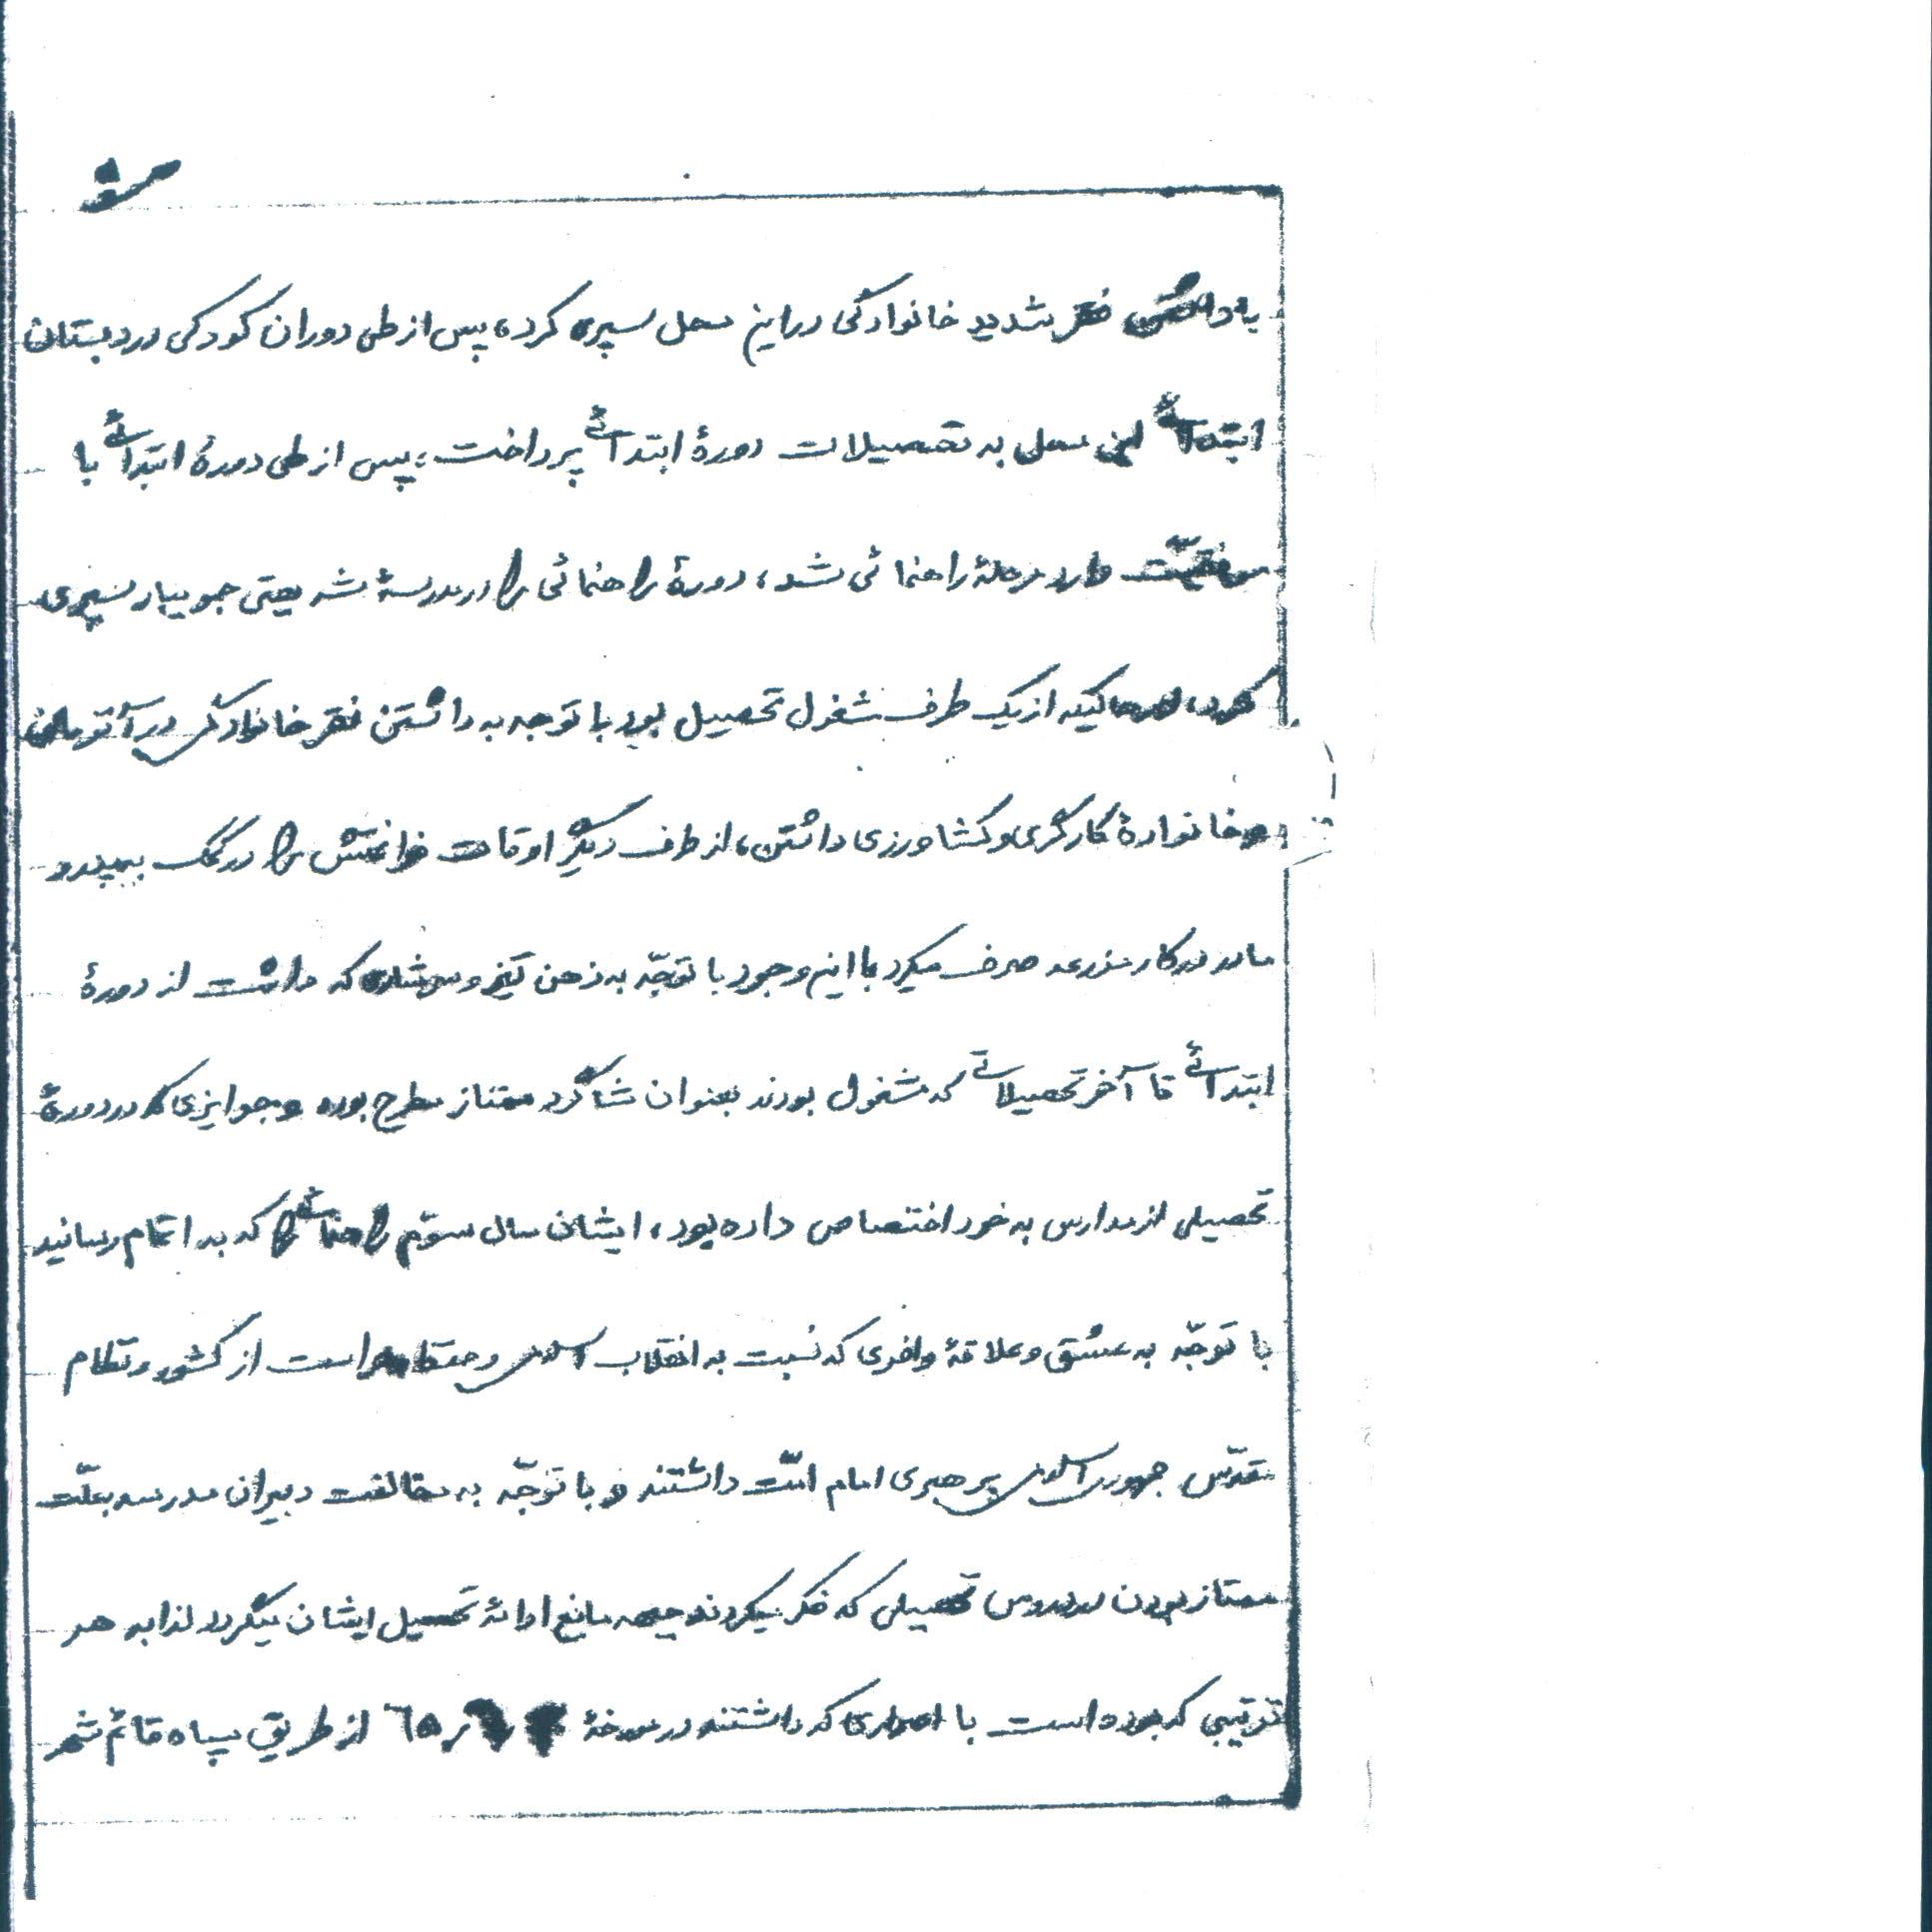 با داشتن فقر شدید خانوادگی در این محل سپری کرده، پس از طی دوران کودکی در دبستان
ابتدائی این محل به تحصیلات دورهٔ ابتدائی پرداخت، پس از طی دورهٔ ابتدائی با
موفقیّت وارد مرحلهٔ راهنمائی شد، دورهٔ راهنمائی را در مدرسهٔ شریعتی جویبار سپری
کرد، در حالیکه از یک طرف مشغول تحصیل بود با توجه به داشتن فقر خانوادگی در آنزمان
و خانوادهٔ کارگری و کشاورزی داشتن، از طرف دیگر اوقات فراغتش را در کمک به پدر و
مادر در کار مزرعه صرف میکرد با این وجود با توجّه به ذهن تیز و سرشاری که داشت از دورهٔ
ابتدائی تا آخر تحصیلاتی که مشغول بودند بعنوان شاگرد ممتاز مطرح بوده و جوایزی که در دورهٔ
تحصیلی از مدارس به خود اختصاص داده بود، ایشان سال سوّم راهنمائی را که به اتمام رسانید
با توجّه به عشق و علاقهٔ وافری که نسبت به انقلاب اسلامی و حراست از کشور و نظام
مقدّس جمهوری اسلامی برهبری امام امّت داشتند و با توجّه به مخالفت دبیران مدرسه بعلّت
ممتاز بودن در دروس تحصیلی که فکر میکردند جبهه مانع ادامهٔ تحصیل ایشان میگردد لذا به هر
ترتیبی که بوده است با اصراری که داشتند در مورخهٔ ٦٥ از طریق سپاه قائم شهر